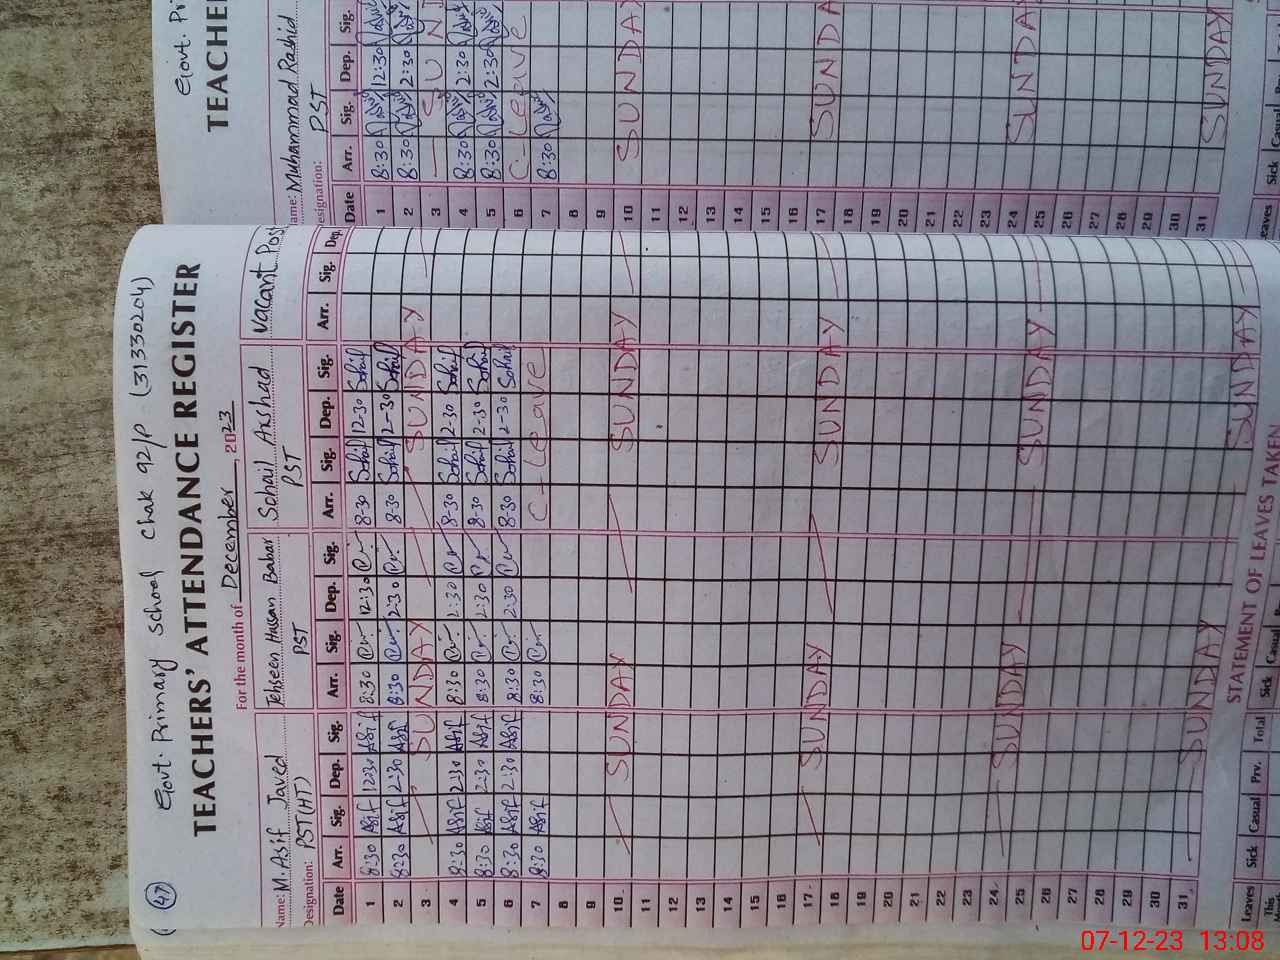 47
Govt. Primary School Chak 92/P (31330204)
TEACHERS' ATTENDANCE REGISTER
For the month of December, 2023
Name: M. Asif Javed Tehseen Hassan Babar Sohail Arshad Vacant Post
Designation: PST(HT) PST PST
Date Arr. Sig. Dep. Sig. Arr. Sig. Dep. Sig. Arr. Sig. Dep. Sig. Arr. Sig. Dep.
1 8:30 Asif 12:30 Asif 8:30 12:30 8-30 Sohail 12-30 Sohail
2 8:30 Asif 2:30 Asif 8:30 2:30 8-30 Sohail 2-30 Sohail
3 SUNDAY SUNDAY
4 8:30 Asif 2:30 Asif 8:30 2:30 8-30 Sohail 2-30 Sohail
5 8:30 Asif 2:30 Asif 8:30 2:30 8-30 Sohail 2-30 Sohail
6 8:30 Asif 2:30 Asif 8:30 2:30 8-30 Sohail 2-30 Sohail
7 8:30 Asif 8:30 C-Leave
8
9
10 SUNDAY SUNDAY
11
12
13
14
15
16
17 SUNDAY SUNDAY
18
19
20
21
22
23
24 SUNDAY SUNDAY
25
26
27
28
29
30
31 SUNDAY SUNDAY
STATEMENT OF LEAVES TAKEN
Leaves Sick Casual Prv. Total Sick Casual
This
Govt. Pri
TEACHER
Name: Muhammad Rashid
Designation: PST
Date Arr. Sig. Dep. Sig.
1 8:30 12:30
2 8:30 2:30
3 SUND
4 8:30 2:30
5 8:30 2:30
6 C-Leave
7 8:30
8
9
10 SUNDA
11
12
13
14
15
16
17 SUNDA
18
19
20
21
22
23
24 SUNDA
25
26
27
28
29
30
31 SUNDAY
Leaves Sick Casual
07-12-23 13:08